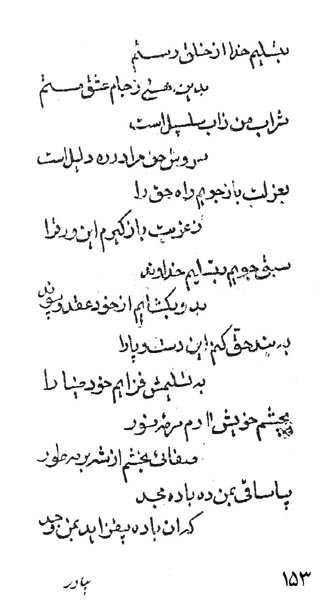 بتسلیم خدا از خلق رستم
بدین هستی ز جام عشق مستم
شراب من ز آب سلسبیل است
سروش حق مرا در ره دلیل است
بعزلت باز جویم راه حق را
ز عزمت بازگیرم این ورق را
سبق جویم بتسلیم خداوند
بدو بگشایم از خود عقد و پیوند
به بند حق کنم این دست و پا را
به تسلیمش فزایم خود ضیا را
بچشم خویش آرم سرمه نور
صفائی بخشم از شر به طور
بیا ساقی بمن ده باده مجد
کزان باده بیفزاید بمن وجد
۱۵۳